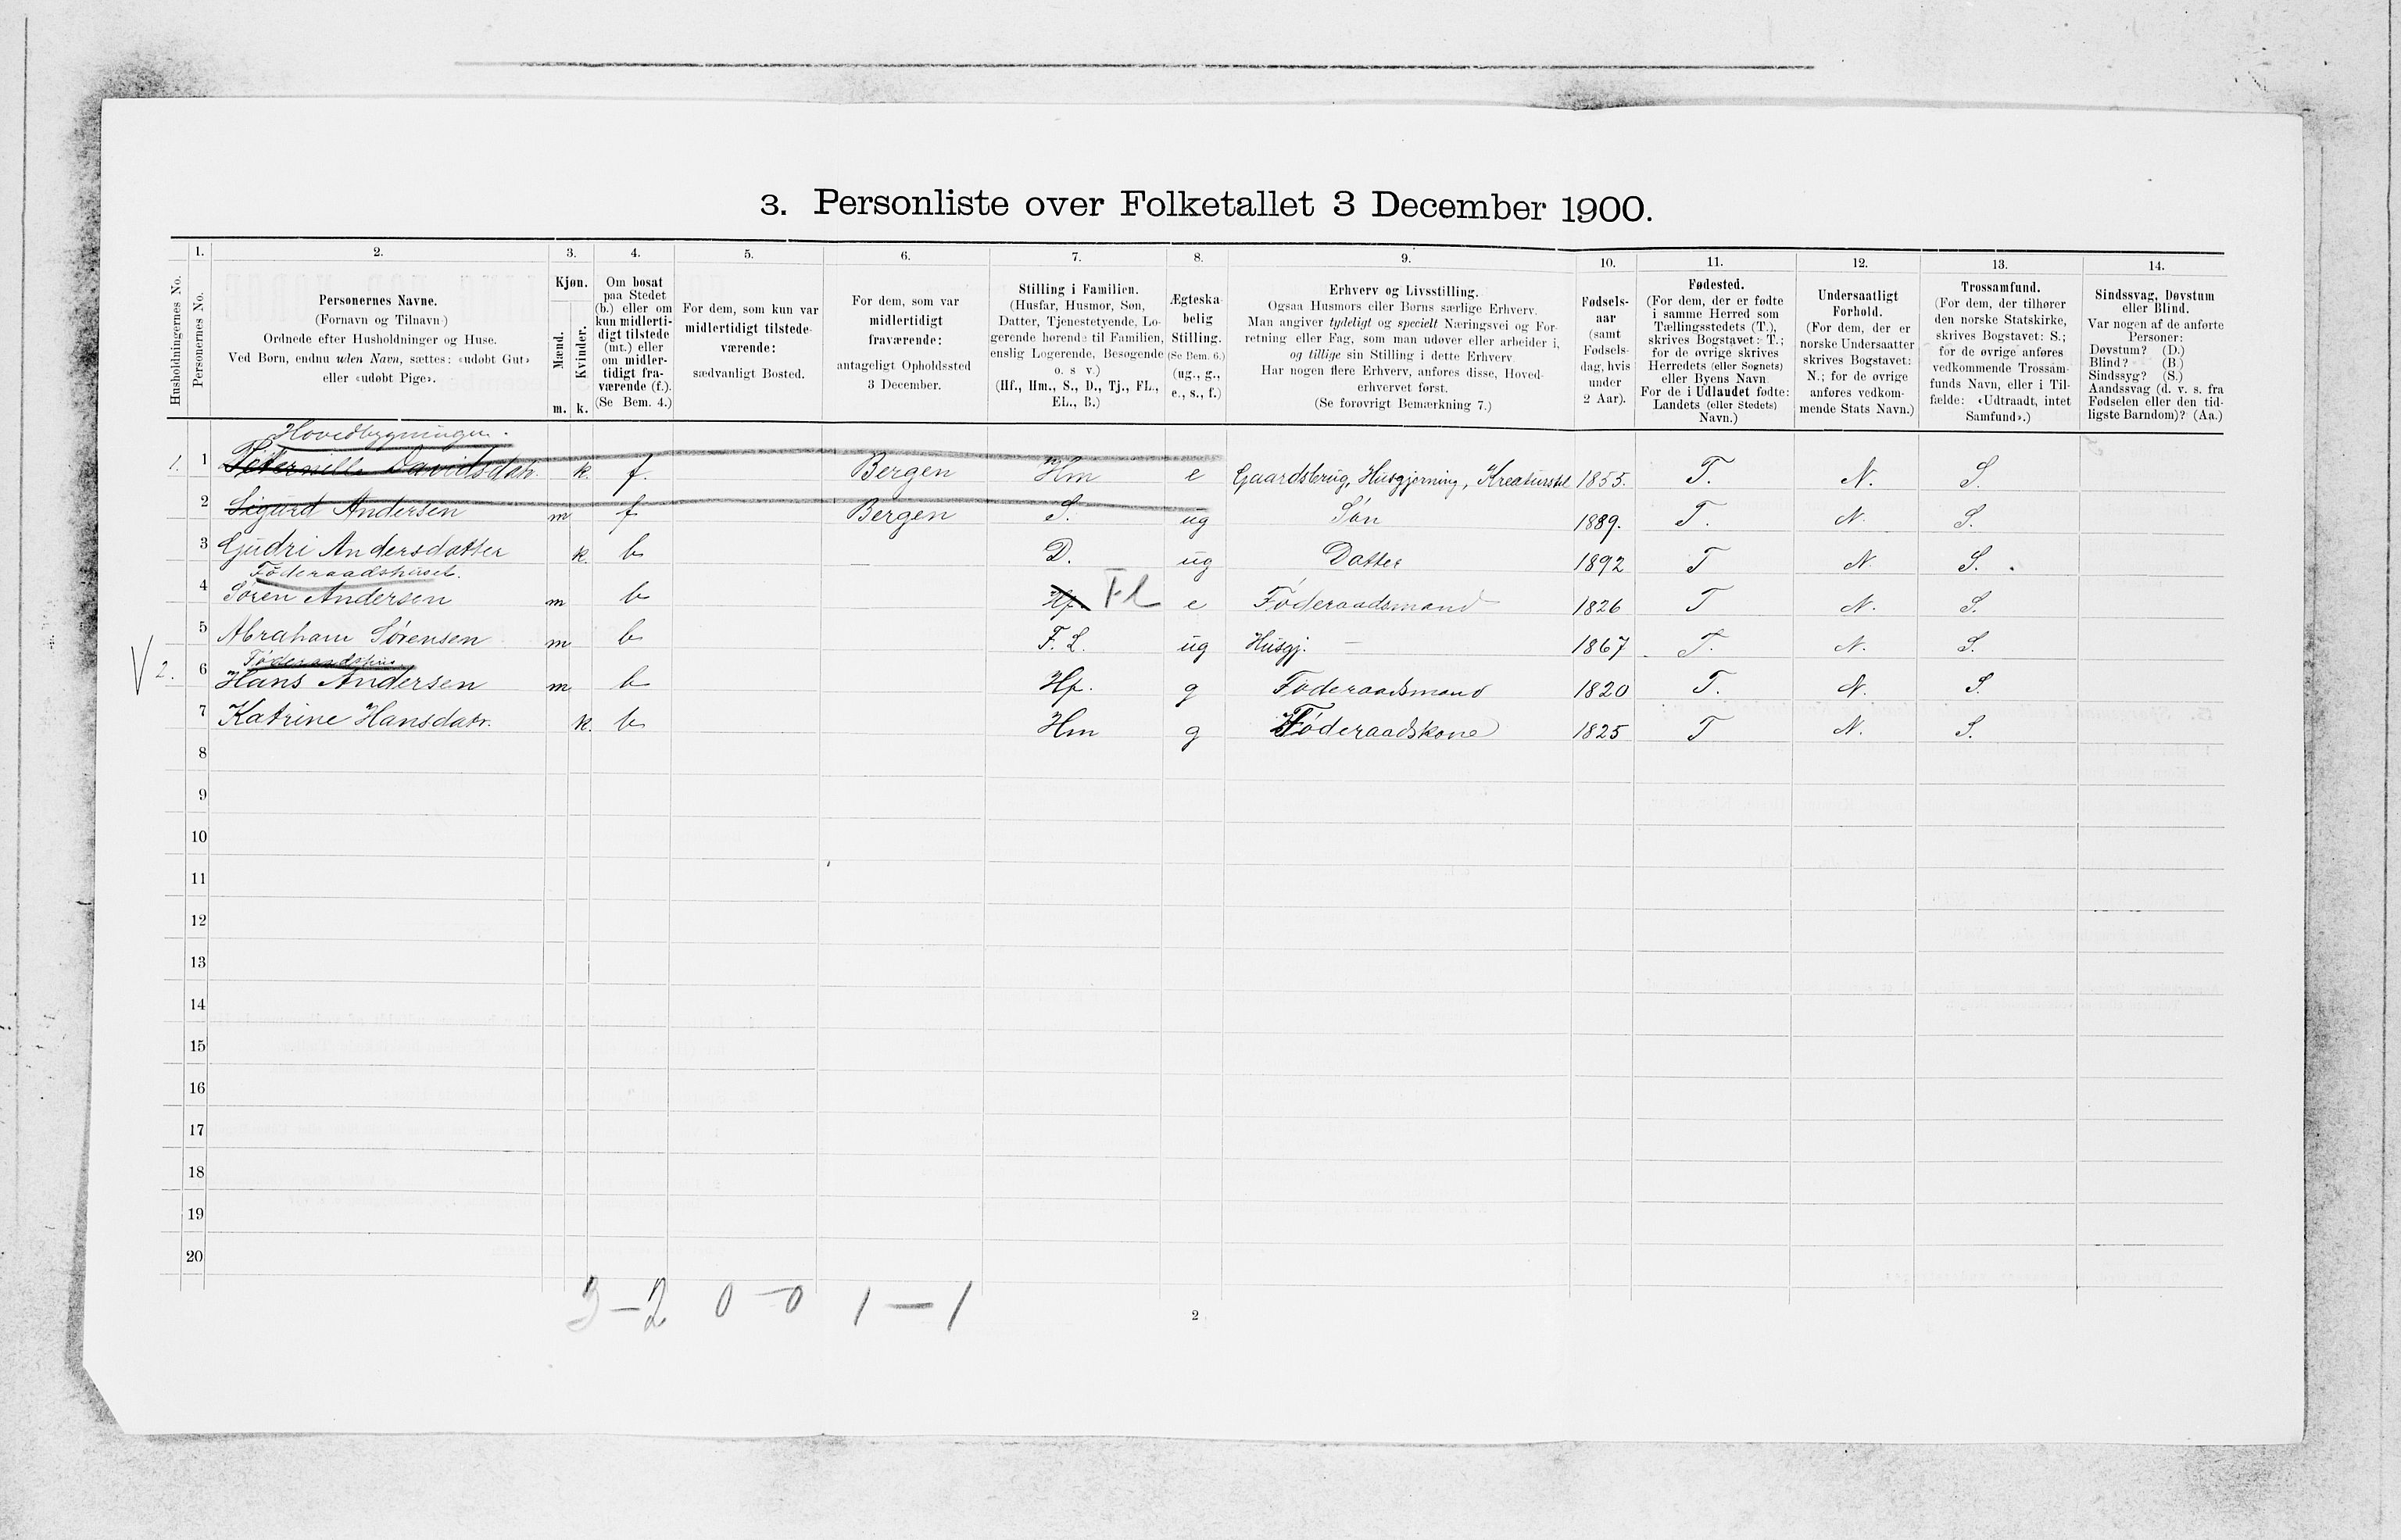 3. Personliste over Folketallet 3 December 1900.
1. 2. 3. 4. 5. 6. 7. 8. 9. 10. 11. 12. 13. 14.
Husholdningernes No.
Personernes No.
Personernes Navne.
(Fornavn og Tilnavn)
Ordnede efter Husholdninger og Huse.
Ved Børn, endnu uden Navn, sættes: «udøbt Gut»
eller «udøbt Pige».
Kjøn.
Mænd.
Kvinder.
m. k.
Om bosat
paa Stedet
(b.) eller om
kun midlerti-
digt tilstede
(mt.) eller
om midler-
tidigt fra-
værende (f.).
(Se Bem. 4.)
For dem, som kun var
midlertidigt tilstede-
værende:
sædvanligt Bosted.
For dem, som var
midlertidigt
fraværende:
antageligt Opholdssted
3 December.
Stilling i Familien.
(Husfar, Husmor, Søn,
Datter, Tjenestetyende, Lo-
gerende hørende til Familien,
enslig Logerende, Besøgende
o. s v.)
(Hf., Hm., S., D., Tj., FL.,
EL., B.)
Ægteska-
belig
Stilling.
(Se Bem. 6.)
(ug., g.,
e., s., f.)
Erhverv og Livsstilling.
Ogsaa Husmors eller Børns særlige Erhverv.
Man angiver tydeligt og specielt Næringsvei og For-
retning eller Fag, som man udøver eller arbeider i,
og tillige sin Stilling i dette Erhverv.
Har nogen flere Erhverv, anføres disse, Hoved-
erhvervet først.
(Se forøvrigt Bemærkning 7.)
Fødsels-
aar
(samt
Fødsels-
dag, hvis
under
2 Aar).
Fødested.
(For dem, der er fødte
i samme Herred som
Tællingsstedets (T.),
skrives Bogstavet: T.;
for de øvrige skrives
Herredets (eller Sognets)
eller Byens Navn
For de i Udlandet fødte:
Landets (eller Stedets)
Navn.)
Undersaatligt
Forhold.
(For dem, der er
norske Undersaatter
skrives Bogstavet:
N.; for de øvrige
anføres vedkom-
mende Stats Navn.)
Trossamfund.
(For dem, der tilhører
den norske Statskirke,
skrives Bogstavet: S.;
for de øvrige anføres
vedkommende Trossam-
funds Navn, eller i Til-
fælde: «Udtraadt, intet
Samfund».)
Sindssvag, Døvstum
eller Blind.
Var nogen af de anførte
Personer:
Døvstum? (D.)
Blind? (B.)
Sindssyg? (S.)
Aandssvag (d. v. s. fra
Fødselen eller den tid-
ligste Barndom)? (Aa.)
Hovedbygningen.
1. 1 Pernille Davidsdatr. k. f. Bergen Hm e Gaardsbrug, Husgjerning, Kreaturstel 1855. T. N. S.
2 Sigurd Andersen m f Bergen S. ug Søn 1889. T. N. S.
3 Gudri Andersdatter k. b D. ug Datter 1892 T N. S.
Føderaadshuset.
4 Søren Andersen m b Hf. Fl e Føderaadsmand 1826 T N. S.
5 Abraham Sørensen m b F. L. ug Husgj. — 1867 T. N. S.
Føderaadshus
V 2. 6 Hans Andersen m b Hf. g Føderaadsmand 1820 T. N. S.
7 Katrine Hansdatr. k. b Hm g Føderaadskone 1825 T N. S.
8
9
10
11
12
13
14
15
16
17
18
19
20
3–2 0–0 1–1
2